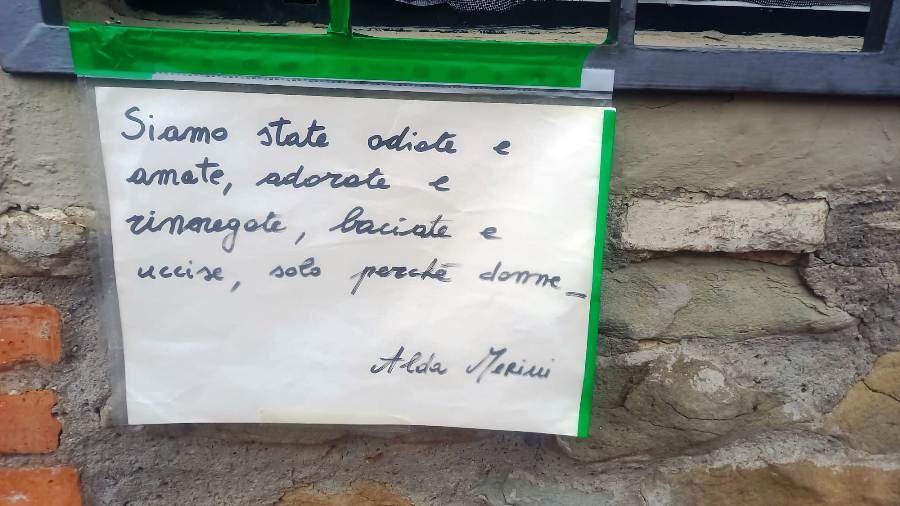 Siamo state odiate e
amate, adorate e
rinnegate, baciate e
uccise, solo perchè donne_
Alda Merini